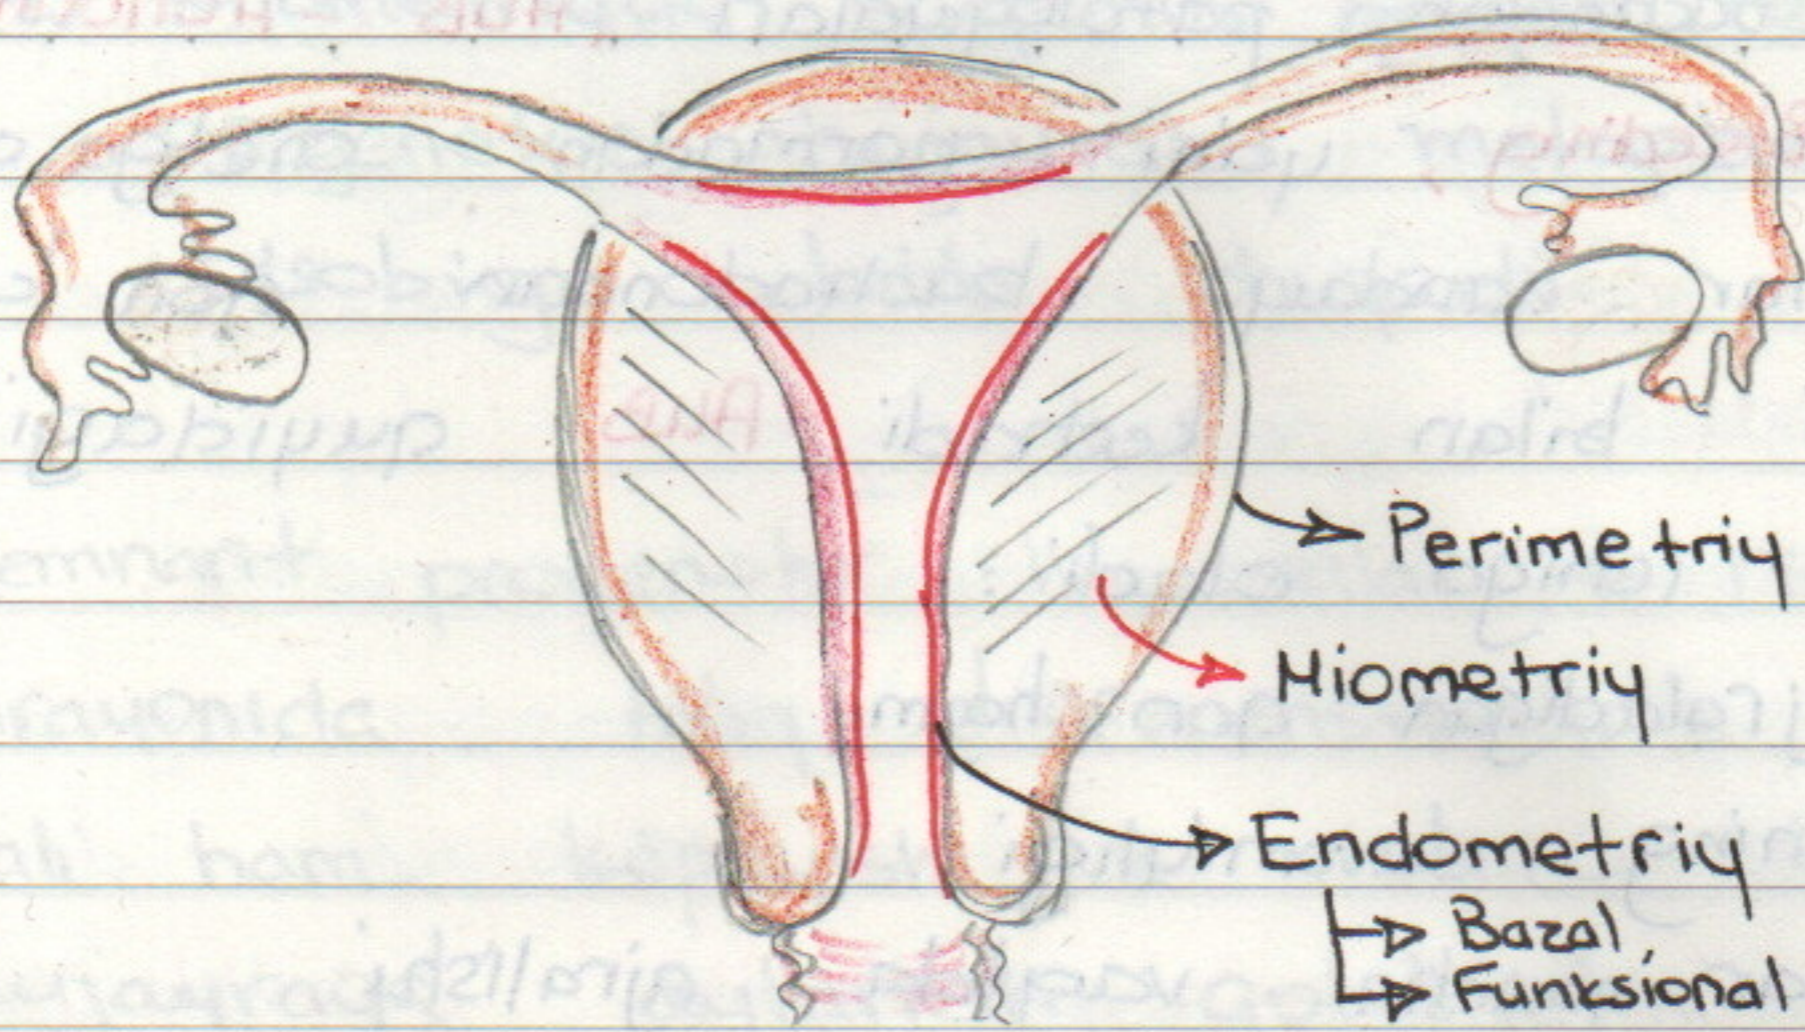 Perimetriy
Miometriy
Endometriy
Bazal
Funksional